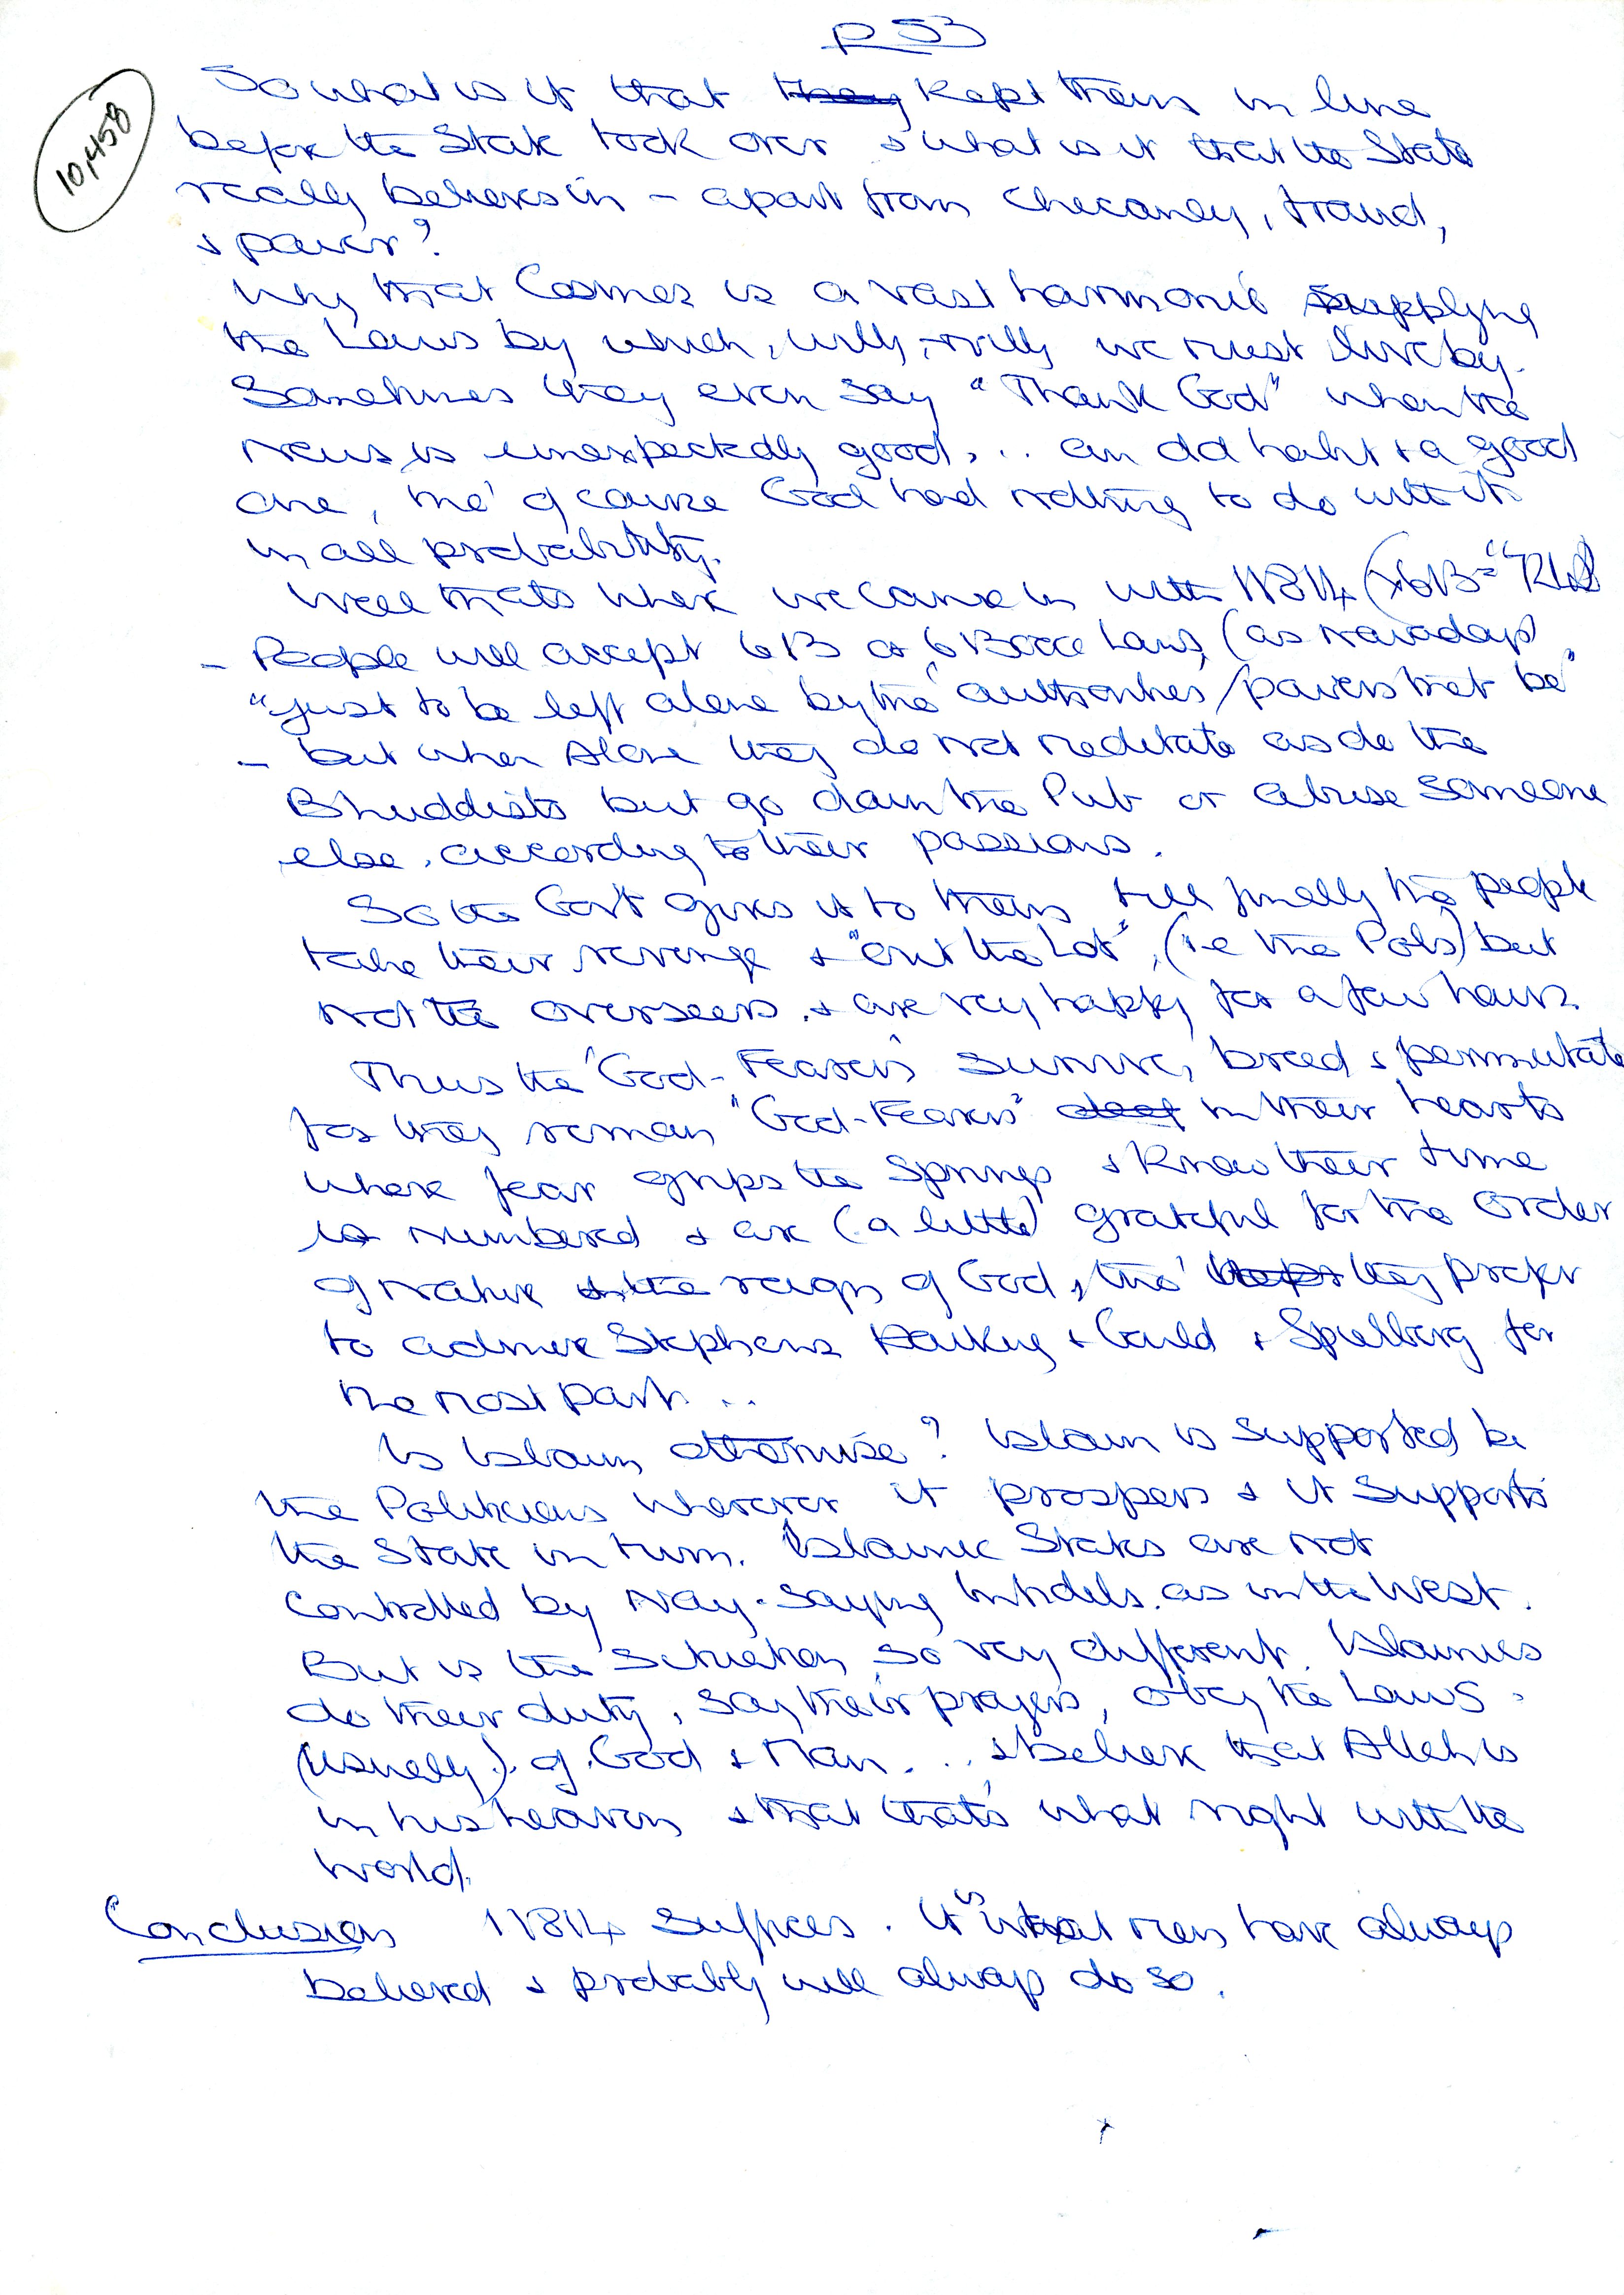 p 53
10,458
So what is it that they kept them in line
before the State took over & what is it that the State
really believes in – apart from Checanery, fraud,
& power?
Why that Cosmos is a vast harmonic supplying
the Laws by which, willy, nilly we must live by.
Sometimes they even say "Thank God" when the
news is unexpectedly good, .. an old habit & a good
one, tho' of course God had nothing to do with it
in all probability.
Well thats where we came in with 11814
– People will accept 6B or 6B Laws, (as nowadays)
"just to be left alone by the authorities/powers that be"
– but when Alone they do not meditate as do the
Bhuddists but go down the Pub or abuse someone
else, according to their passions.
So the Gov't gives it to them till finally the people
take their revenge & "out the Lot", (i.e the Pols) but
not the overseers, & are very happy for a few hours.
Thus the 'God-Fearers' survive, breed & permutate
for they remain "God-Fearers" deep in their hearts
where fear grips the Springs & know their time
is numbered & are (a little) grateful for the order
of nature & the reign of God, tho' they prefer
to admire Stephens Hawking & Gould & Spielberg for
the most part ..
Is Islam otherwise? Islam is supported be
the Politicians wherever it prospers & it supports
the State in turn. Islamic States are not
controlled by Nay-saying Infidels as in the West.
But is the situation so very different. Islamics
do their duty, say their prayers, obey the Laws
(usually). of God & Man. .. & believe that Allah is
in his heaven & that that's what right with the
world.
Conclusion 11814 Suffices. It is what men have always
believed & probably will always do so.